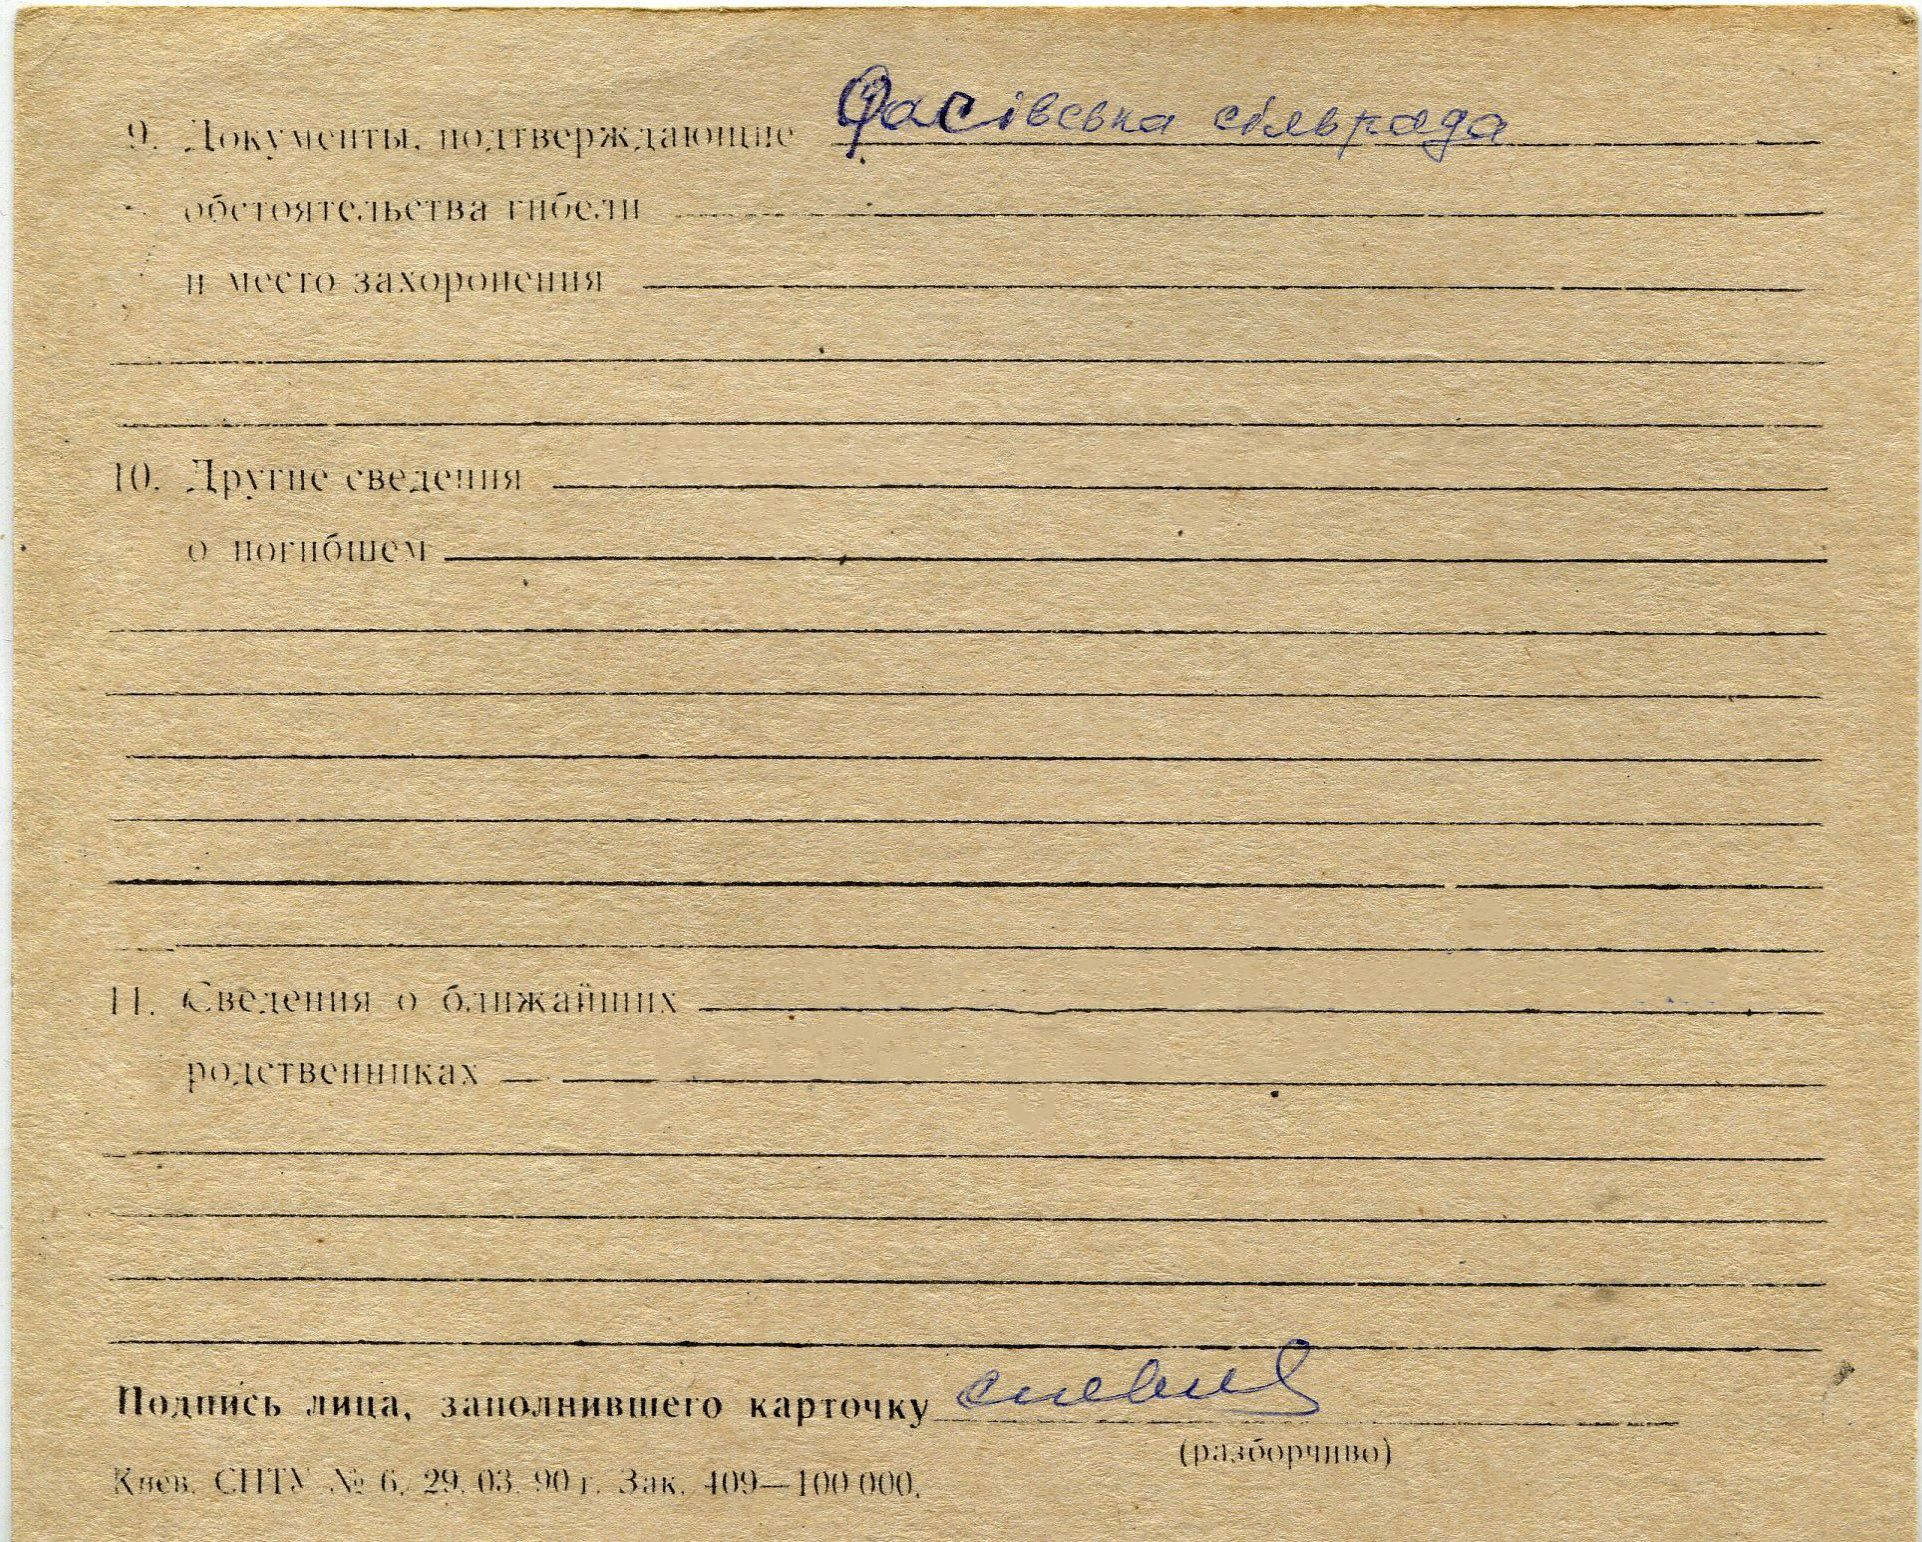 9. Документы, подтверждающие Фасівська сільрада
обстоятельства гибели
и место захоронения
10. Другие сведения
о погибшем
11. Сведения о ближайших
родственниках
Подпись лица, заполнившего карточку
(разборчиво)
Киев. СПТУ № 6. 29. 03. 90 г. Зак. 409—100 000.